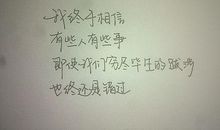 我终于相信
有些人有些事
即使我们穷尽毕生的
也终还是错过